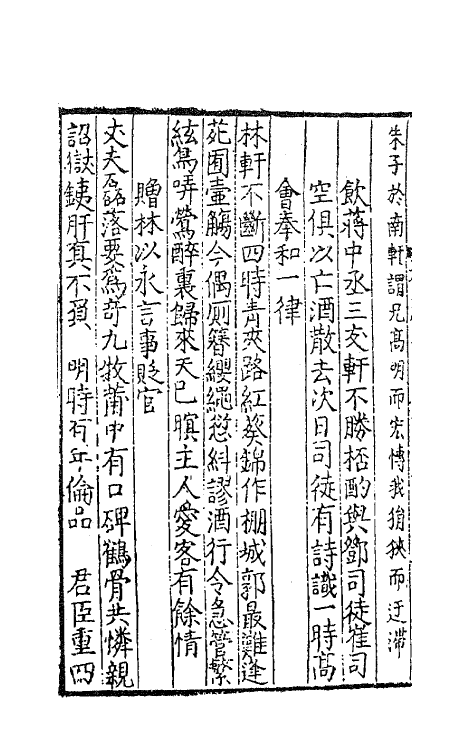 朱子於南軒謂兄高明而宏博我狷狹而迂滯
飲蔣中丞三友軒不勝桮酌與鄧司徒崔司
空俱以亡酒散去次日司徒有詩識一時高
會奉和一律
林軒不斷四時青夾路紅葵錦作棚城郭最難逢
苑囿壺觴今偶廁簪纓繩愆糾謬酒行令急管繁
絃鳥哢鶯醉裏歸來天已瞑主人愛客有餘情
贈林以永言事貶官
丈夫磊落要爲奇九牧莆中有口碑鶴骨共憐親
詔獄銕肝真不負 明時百年倫品 君臣重四